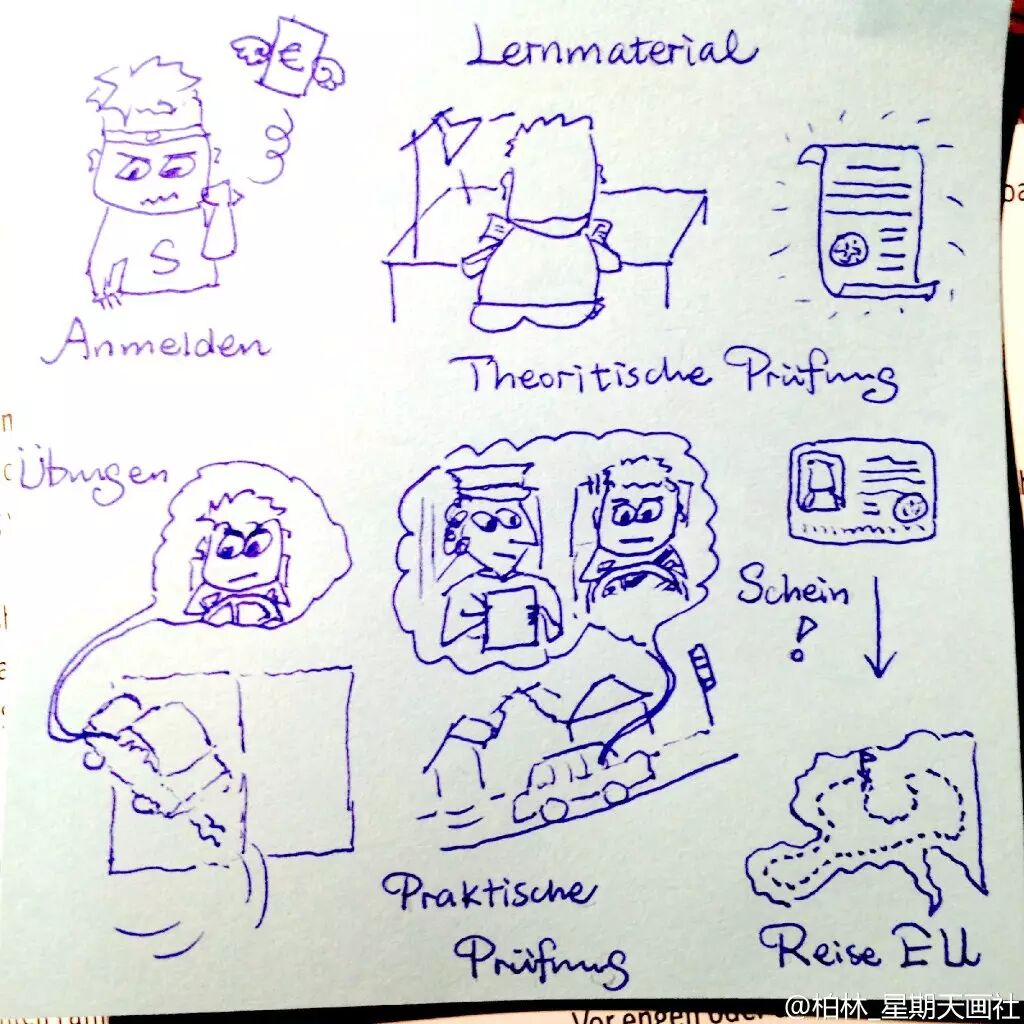 €
Lernmaterial
S
Anmelden
Theoritische Prüfung
Übungen
Schein
!
Praktische
Prüfung
Reise EU
Vor engen oder
@柏林_星期天画社